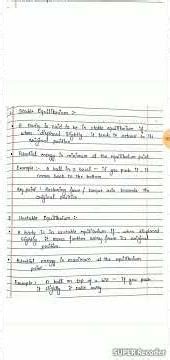 1. Stable Equilibrium :-
• A body is said to be in stable equilibrium if,
when displaced slightly, it tends to return to its
original position.
• Potential energy is minimum at the equilibrium point.
Example :- A ball in a bowl - If you push it, it
comes back to the bottom.
Key point : Restoring force / torque acts towards the
original position.
2. Unstable Equilibrium :-
• A body is in unstable equilibrium if, when displaced
slightly, it moves further away from its original
position.
• Potential energy is maximum at the equilibrium
point.
Example : A ball on top of a hill - If you push
it slightly it rolls away
SUPER Recorder